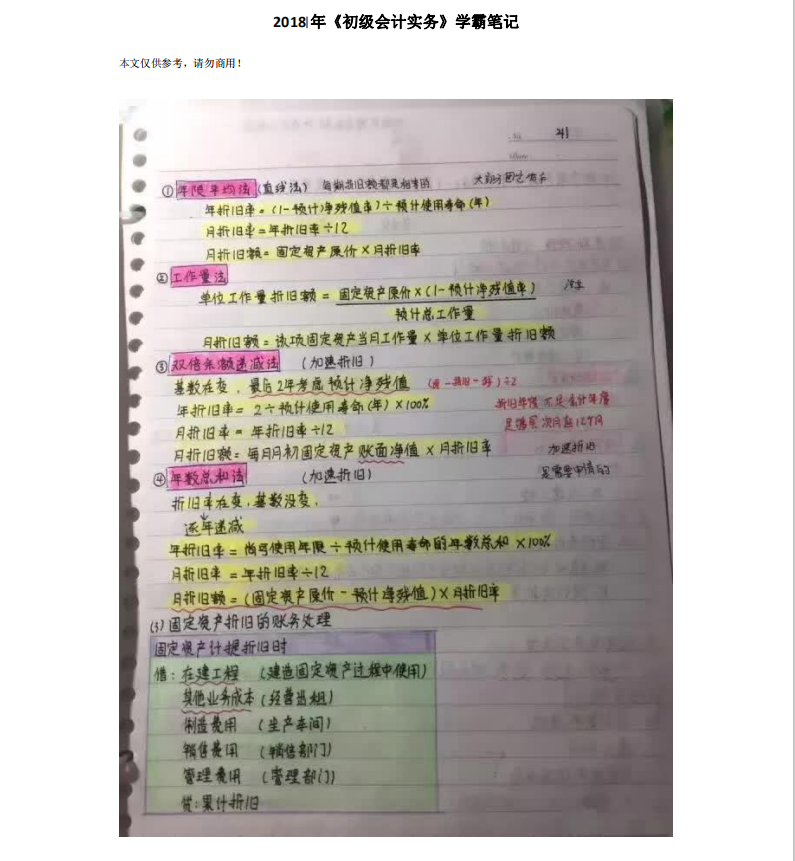 2018年《初级会计实务》学霸笔记
本文仅供参考，请勿商用！
No. 41
Date
①年限平均法(直线法) 每期折旧额都是相等的
年折旧率=(1-预计净残值率)÷预计使用寿命(年)
月折旧率=年折旧率÷12
月折旧额=固定资产原价×月折旧率
②工作量法
单位工作量折旧额=固定资产原价×(1-预计净残值率)
预计总工作量
月折旧额=该项固定资产当月工作量×单位工作量折旧额
③双倍余额递减法 (加速折旧)
基数在变，最后2年考虑预计净残值 (原-折旧-残)÷2
年折旧率=2÷预计使用寿命(年)×100% 折旧年度不是会计年度
月折旧率=年折旧率÷12 是购买次月起12个月
月折旧额=每月月初固定资产账面净值×月折旧率 加速折旧
④年数总和法 (加速折旧) 是需要申请的
折旧率在变，基数没变，
逐年递减
年折旧率=尚可使用年限÷预计使用寿命的年数总和×100%
月折旧率=年折旧率÷12
月折旧额=(固定资产原价-预计净残值)×月折旧率
(3)固定资产折旧的账务处理
固定资产计提折旧时
借：在建工程 (建造固定资产过程中使用)
其他业务成本(经营出租)
制造费用 (生产车间)
销售费用 (销售部门)
管理费用 (管理部门)
贷：累计折旧